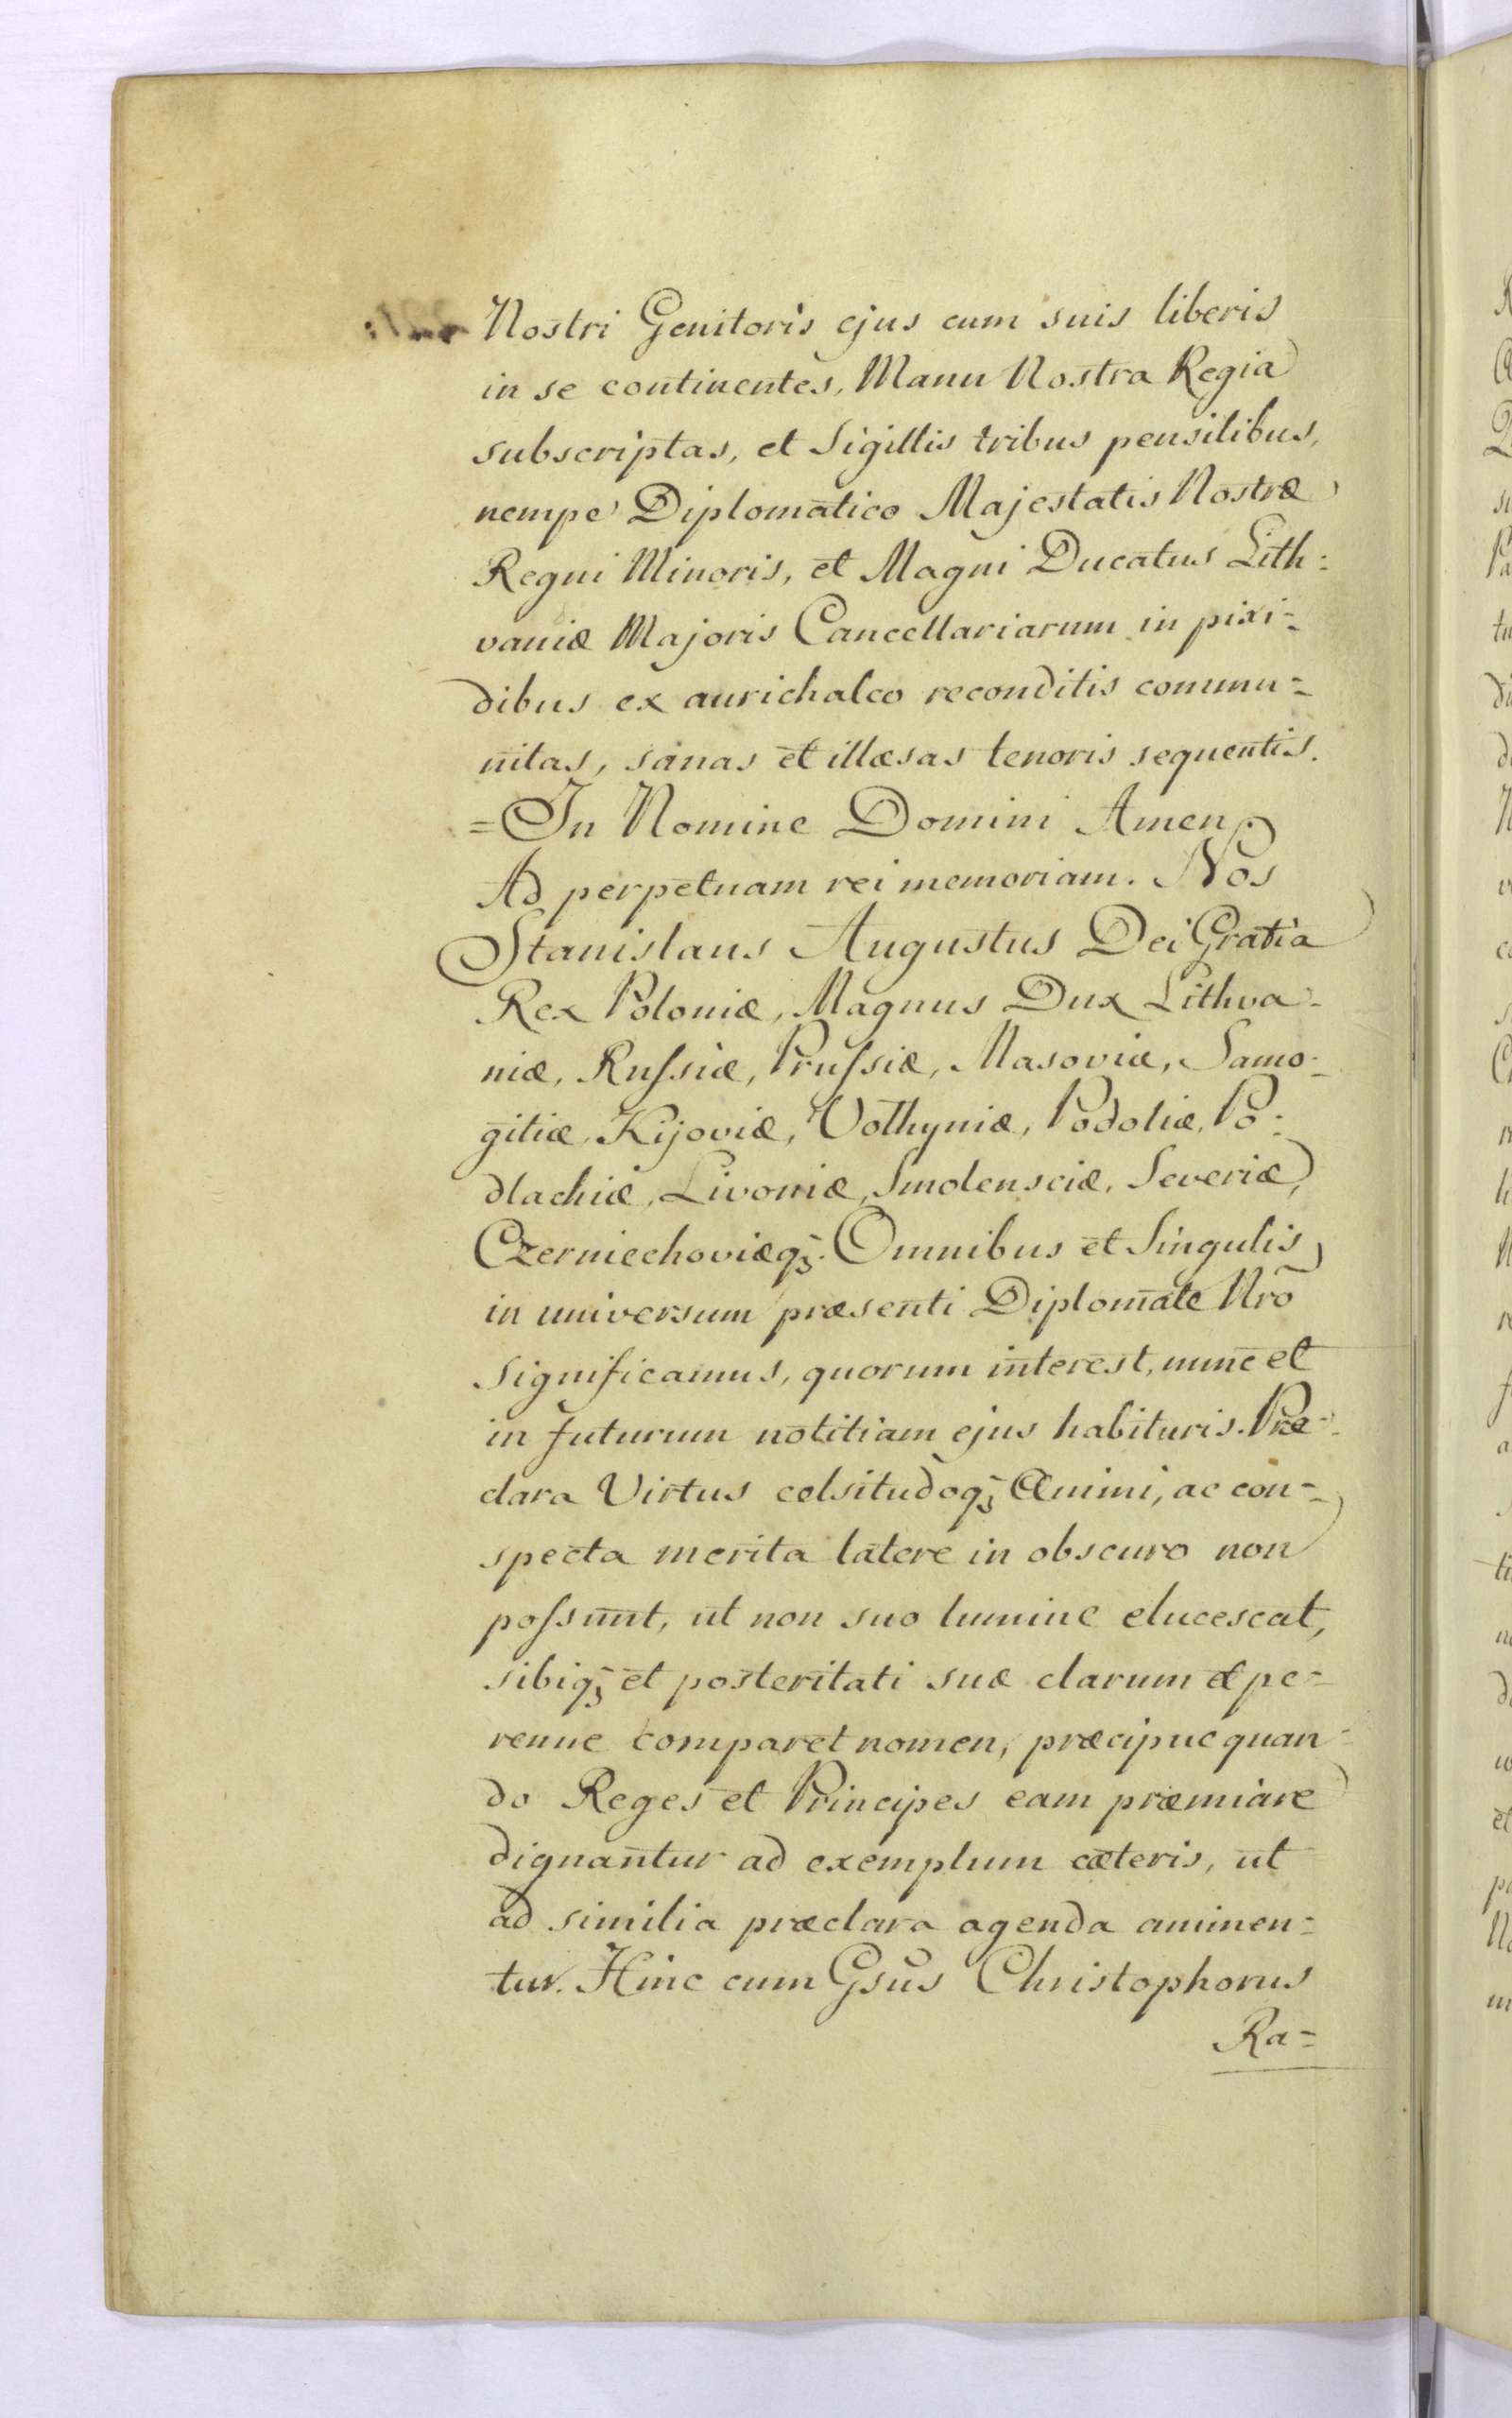 Nostri Genitoris ejus cum suis liberis
in se continentes, Manu Nostra Regia
subscriptas, et Sigillis tribus pensilibus,
nempe Diplomatico Majestatis Nostræ
Regni Minoris, et Magni Ducatus Lith:
vaniæ Majoris Cancellariarum in pixi=
dibus ex aurichalco reconditis commu=
nitas, sanas et illæsas tenoris sequentis.
=In Nomine Domini Amen.
Ad perpetuam rei memoriam. Nos
Stanislaus Augustus Dei Gratia
Rex Poloniæ, Magnus Dux Lithva=
niæ, Rufsiæ, Prufsiæ, Masoviæ, Samo=
gitiæ, Kijoviæ, Volhyniæ, Podoliæ, Po=
dlachiæ, Livoniæ, Smolensciæ, Severiæ,
Czerniechoviæq;. Omnibus et Singulis
in universum præsenti Diplomate Nrõ
significamus, quorum interest, nunc et
in futurum notitiam ejus habituris. Præ=
clara Virtus celsitudoq; Animi, ac con=
specta merita latere in obscuro non
pofsunt, ut non suo lumine elucescat,
sibiq; et posteritati suæ clarum et pe=
renne comparet nomen, præcipue quan=
do Reges et Principes eam præmiare
dignantur ad exemplum cæteris, ut
ad similia præclara agenda animen=
tur. Hinc cum Gsũs Christophorus
Ra=